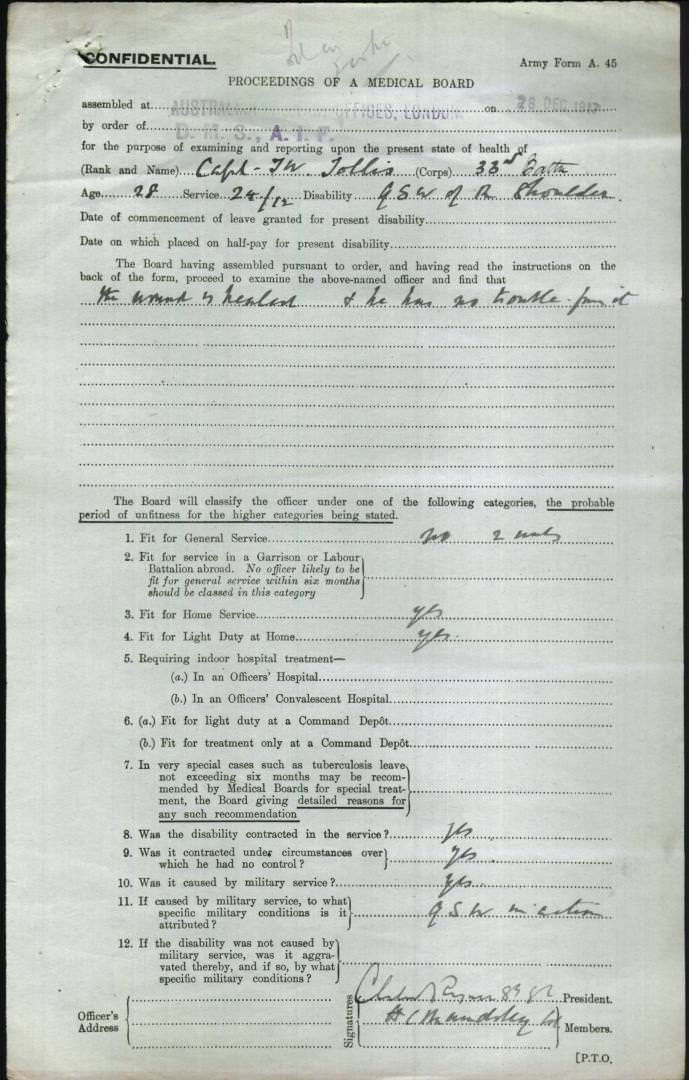 CONFIDENTIAL.
Army Form A. 45
PROCEEDINGS OF A MEDICAL BOARD
assembled at AUSTRALIAN OFFICES, LONDON. on 28 DEC 1917
by order of D. M. S., A. I. F.
for the purpose of examining and reporting upon the present state of health of
(Rank and Name) Capt - T W Tollis (Corps) 33rd Battn
Age 28 Service 28/12 Disability G S W of R Shoulder.
Date of commencement of leave granted for present disability
Date on which placed on half-pay for present disability
The Board having assembled pursuant to order, and having read the instructions on the
back of the form, proceed to examine the above-named officer and find that
the wound is healed & he has no trouble from it
The Board will classify the officer under one of the following categories, the probable
period of unfitness for the higher categories being stated.
1. Fit for General Service no 2 mths
2. Fit for service in a Garrison or Labour
Battalion abroad. No officer likely to be
fit for general service within six months
should be classed in this category
3. Fit for Home Service yes
4. Fit for Light Duty at Home yes.
5. Requiring indoor hospital treatment—
(a.) In an Officers' Hospital
(b.) In an Officers' Convalescent Hospital
6. (a.) Fit for light duty at a Command Depôt
(b.) Fit for treatment only at a Command Depôt
7. In very special cases such as tuberculosis leave
not exceeding six months may be recom-
mended by Medical Boards for special treat-
ment, the Board giving detailed reasons for
any such recommendation
8. Was the disability contracted in the service? yes
9. Was it contracted under circumstances over
which he had no control? yes
10. Was it caused by military service? yes.
11. If caused by military service, to what
specific military conditions is it
attributed? G S W in action
12. If the disability was not caused by
military service, was it aggra-
vated thereby, and if so, by what
specific military conditions?
Officer's
Address
Signatures
President.
H C Maudsley Members.
[P.T.O.